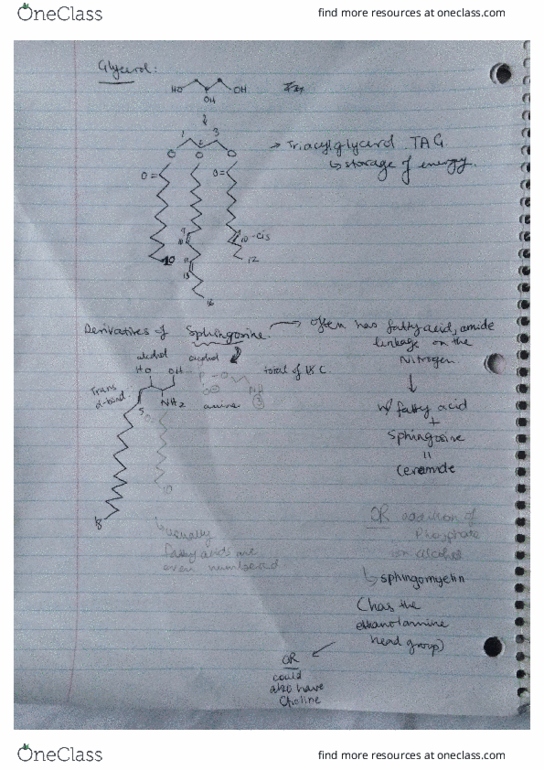 OneClass
find more resources at oneclass.com
Glycerol:
HO OH
OH
1 2 3
O O O
O= O=
→ Triacylglycerol TAG
↳ storage of energy.
9
10 10-cis
10 12
12
13
18
Derivatives of Sphingosine → often has fatty acid, amide
linkage on the
Nitrogen.
alcohol alcohol
HO OH
total of 18 C.
Trans
NH2
amine
↓
w/ fatty acid
+
Sphingosine
=
Ceramide
18
10
↳ usually
fatty acids are
even numbered
OR addition of
Phosphate
on alcohol
↳ sphingomyelin
(has the
ethanolamine
head group)
OR
could
also have
Choline
OneClass
find more resources at oneclass.com